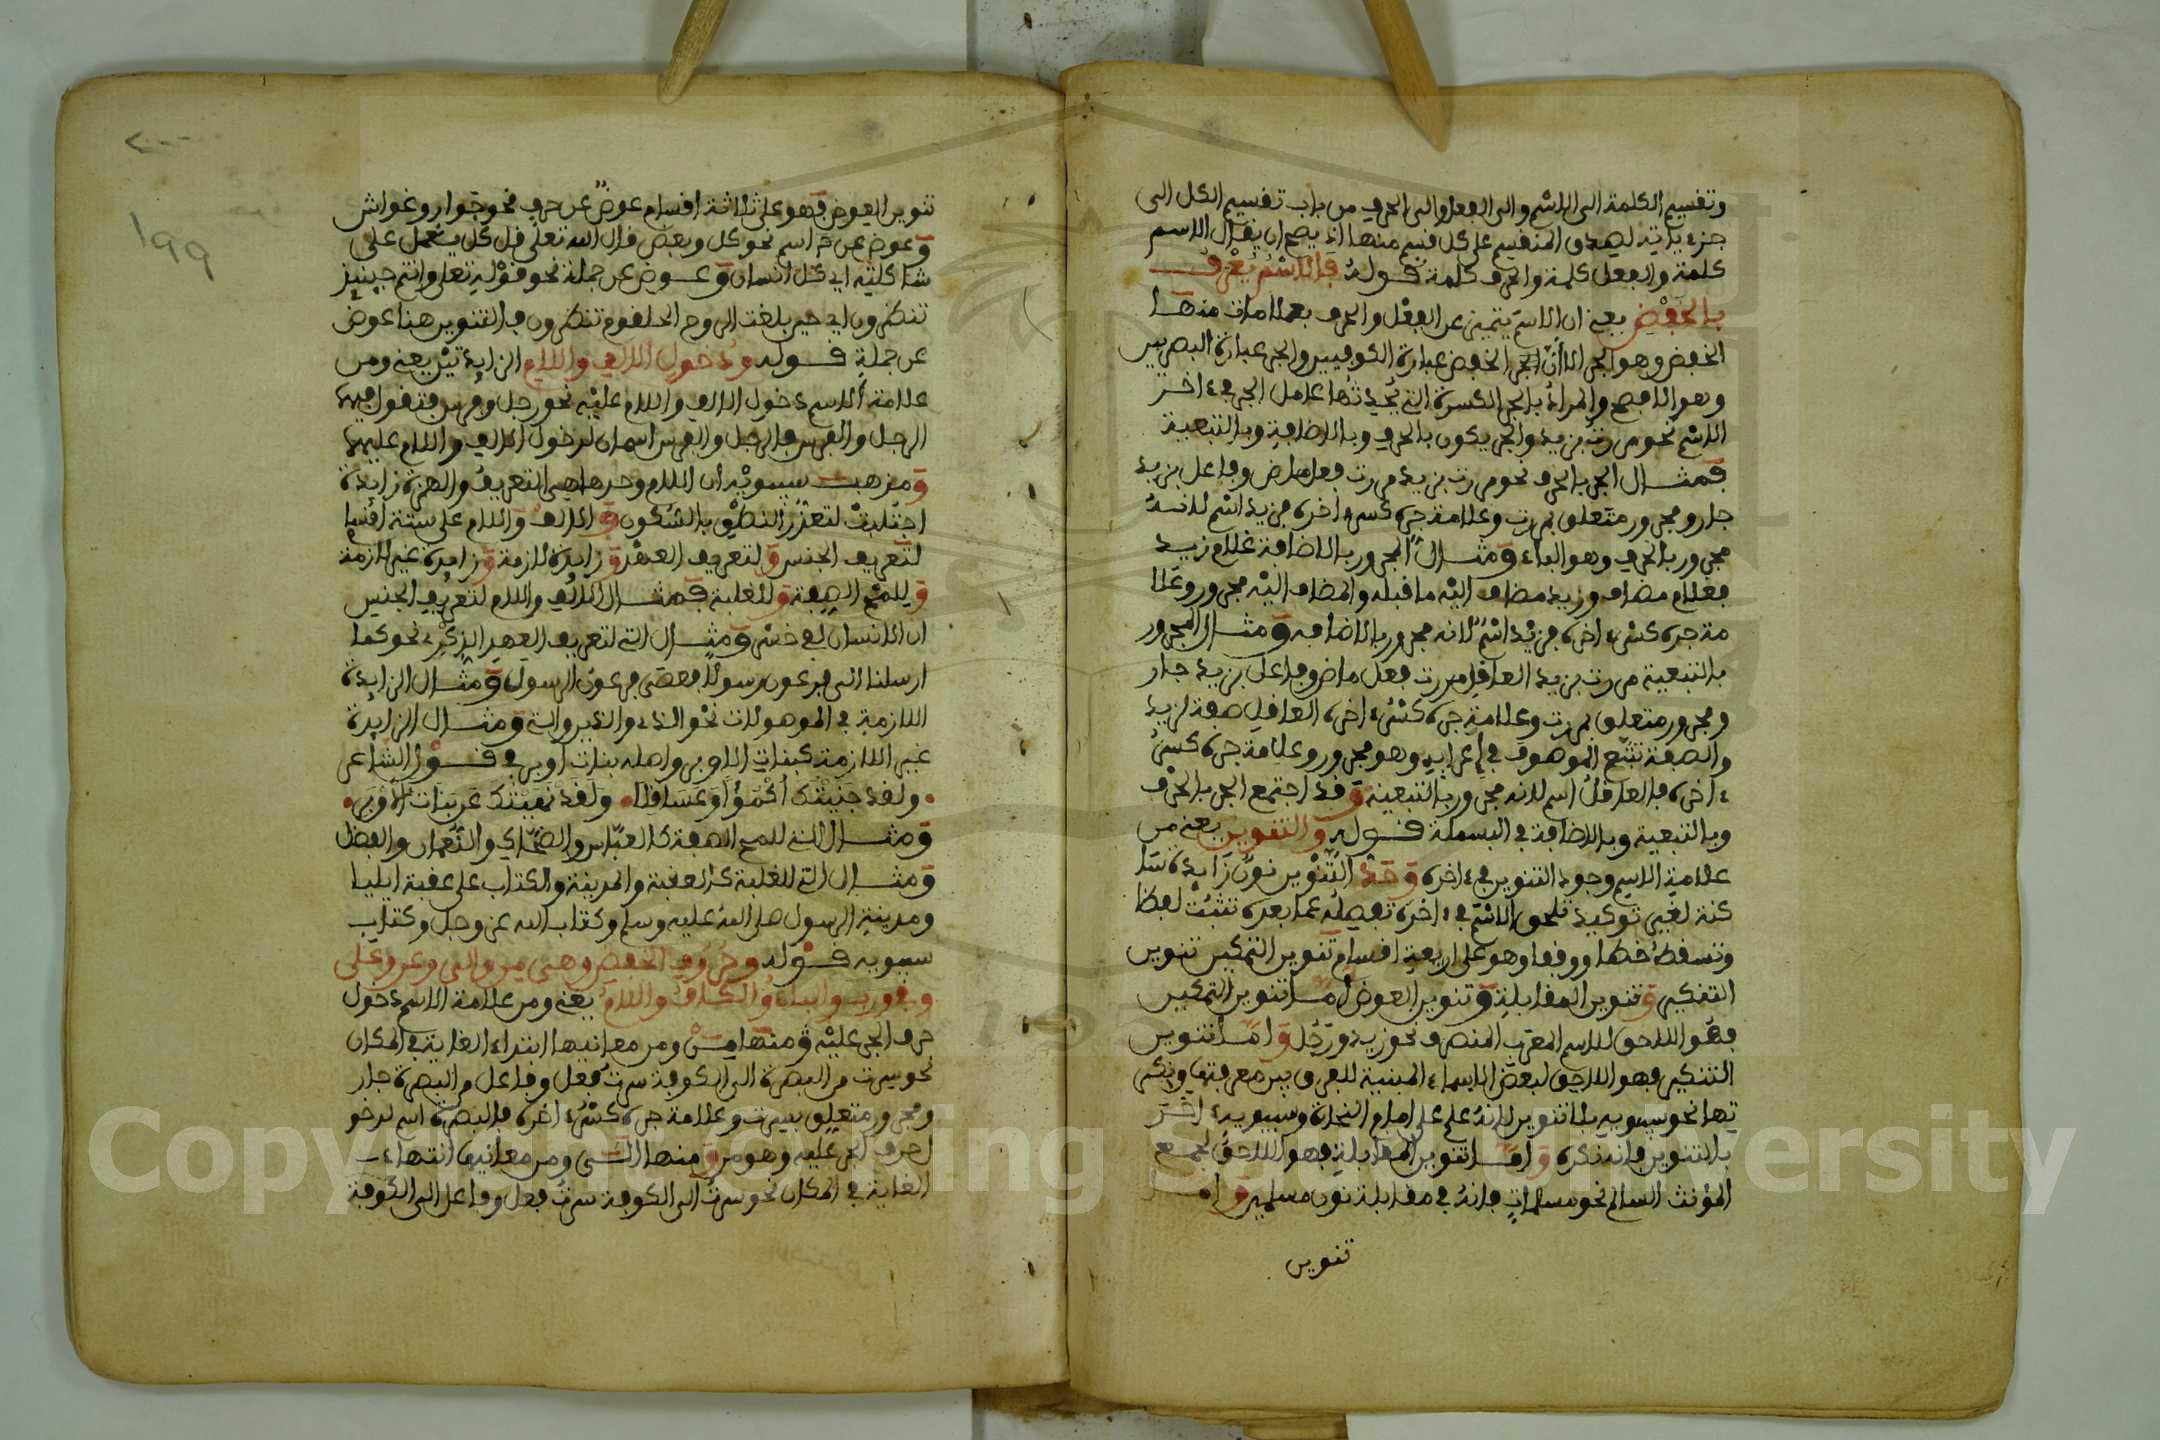 وتقسيم الكلمة الى الاسم والى الفعل والى الحرف من باب تقسيم الكل الى
جزءياته لصدق المنقسم على كل قسم منها اذ يصح ان يقال الاسم
كلمة والفعل كلمة والحرف كلمة قوله فَالاسْمُ يُعْرَفُ
بالخَفْضِ يعني ان الاسم يتميز عن الفعل والحرف بعلامات منها
الخفض وهو الجر الا أنّ الخفض عبارة الكوفيين والجر عبارة البصريين
وهو الافصح والمرادُ بالجر الكسرة التي يُحدِثُها عامل الجر في ءاخر
الاسم نحو مررت بزيد والجر يكون بالحرف وبالاضافة وبالتبعية
فمثال الجر بالحرف نحو مررت بزيد مررت فعل ماض وفاعل بزيد
جار ومجرور متعلق بمررت وعلامة جره كسرة ءاخره فزيد اسم لانه
مجرور بالحرف وهو الباء ومثال المجرور بالاضافة غلام زيد
فغلام مضاف وزيد مضاف اليْه ما قبله والمضاف اليْه مجرور وعلا
مة جره كسرة ءاخره فزيْد اسْمٌ لانه مجرور بالاضافه ومثال المجرور
بالتبعية مررت بزيد العاقل مررت فعل ماض وفاعل بزيد جار
ومجرور متعلق بمررت وعلامة جره كسْرة ءاخره العاقل صفة لزيد
والصفة تتبع الموصوف في إعرابه وهو مجرور وعلامة جره كسرة
ءاخره فالعاقلُ اسم لانه مجرور بالتبعية وقد اجتمع الجر بالحرف
وبالتبعية وبالاضافة في البسملة قوله والتنوين يعني من
علامة الاسم وجود التنوين في ءاخره وَحَدُّ التنْوين نونٌ زَايدة سَا
كنة لغير توكيد تلحق الاسْم في ءاخره تفصلُه عما بعده تثبُت لفظا
وتسقط خطا ووقفا وهو على اربعة اقسام تنوين التمكين تنوين
التنكير وتنوين المقابلة وتنوين العوض أما تنوين التمكين
فهو اللاحق للاسم المعرب المنصرف نحو زيد ورَجُل وأمّا تنوين
التنكير فهو اللاحِق لبعض الاسماء المبنية للفرق بين معرفتها ونكر
تها نحو سيبويه بلا تنوين لانهُ علم على امام النحاة وسيبويه ءاخر
بالتنوين فانه نكرة وأمّا تنوين المقابلة فهو اللاحقُ لجمع
المؤنث السالم نحو مسلماتٍ فانهُ في مقابلة نون مسلمين وأما
تنوين
٢٠٠
١٩٩
تنوين العوض فهو على ثلاثة اقسام عوض عن حرف نحو جَوار وغواش
وعوض عن اسم نحو كل وبعض قال الله تعلى قل كل يعمل على
شاكلته اي كل انسان وعوض عن جملة نحو قوْله تعلى وانتم حينئذ
تنظرون اي حين بلغت الروح الحلقوم تنظرون فالتنوين هنا عوض
عن جملة قوله ودُخول الالف واللام الزايدتيْن يعني ومن
علامة الاسم دخول الالف واللام عليْه نحو رجل وفرس فتقول فيهما
الرجل والفرس فالرجل والفرس اسمان لدخول الالف واللام عليهما
ومذهب سيبويْه أن اللام وحدها هي التعريفُ والهمزة زايدة
اجتُلبتْ لتعذّر النطق بالسُكون والالف واللام على ستة اقسام
لتعريف الجنس ولتعريف العهْد وزايدة لازمة وزايدة غير لازمة
وللمْح الصفة وللغلبة فمثال الالف واللام لتعريف الجنس
ان الانسان لفي خسْر ومثال التي لتعريف العهد الذِكْري نحو كما
ارسلنا الى فرعون رسولا فعصى فرعوْن الرسول ومثال الزايدة
اللازمة في الموصولات نحْو الذي والذين والتي ومثال الزايدة
غير اللازمة كبنات الاوبر واصله بنات اوبر في قوْل الشاعر
ولقد جنَيْتُكَ أكْمُؤًا وَعَسَاقِلًا ولَقَدْ نَهَيْتُكَ عَن بَنات الأوْبَر
ومثال التي للمح الصفة كالعبّاس والضحّاك والنّعمان والفضل
ومثال التي للغلبة كالعقبة والمدينة والكتاب على عقبة ايليا
ومدينة الرسول صلى الله عليه وسلم وكتاب الله عز وجل وكتاب
سيبويه قوْله وحُرُوف الخفض وهي مِن والى وعن وعلى
وفي ورب والباء والكاف واللام يعني ومن علامة الاسم دخول
حرف الجر عليْه ومنها مِنْ ومن معانيها ابتداء الغاية في المكان
نحو سرت من البصرة الى الكوفة سرت فعل وفاعل من البصرة جار
ومجرور متعلق بسرت وعلامة جره كسْرة ءاخره فالبصرة اسم لدخو
ل حرف الجر عليه وهو من ومنها الى ومن معانيها انتهاء
الغاية في المكان نحو سرتُ الى الكوفة سرتُ فعل وفاعل الى الكوفة
Copyright © King Saud University